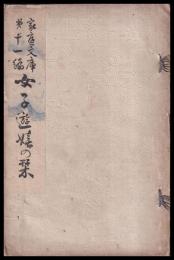 家庭文庫
第十一編
女子遊嬉の栞